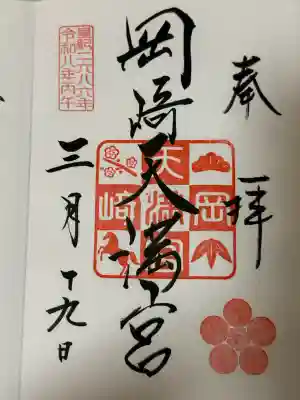 奉拝
岡崎天満宮
岡崎天満宮
皇紀二六八六年
令和八年丙午
三月十九日